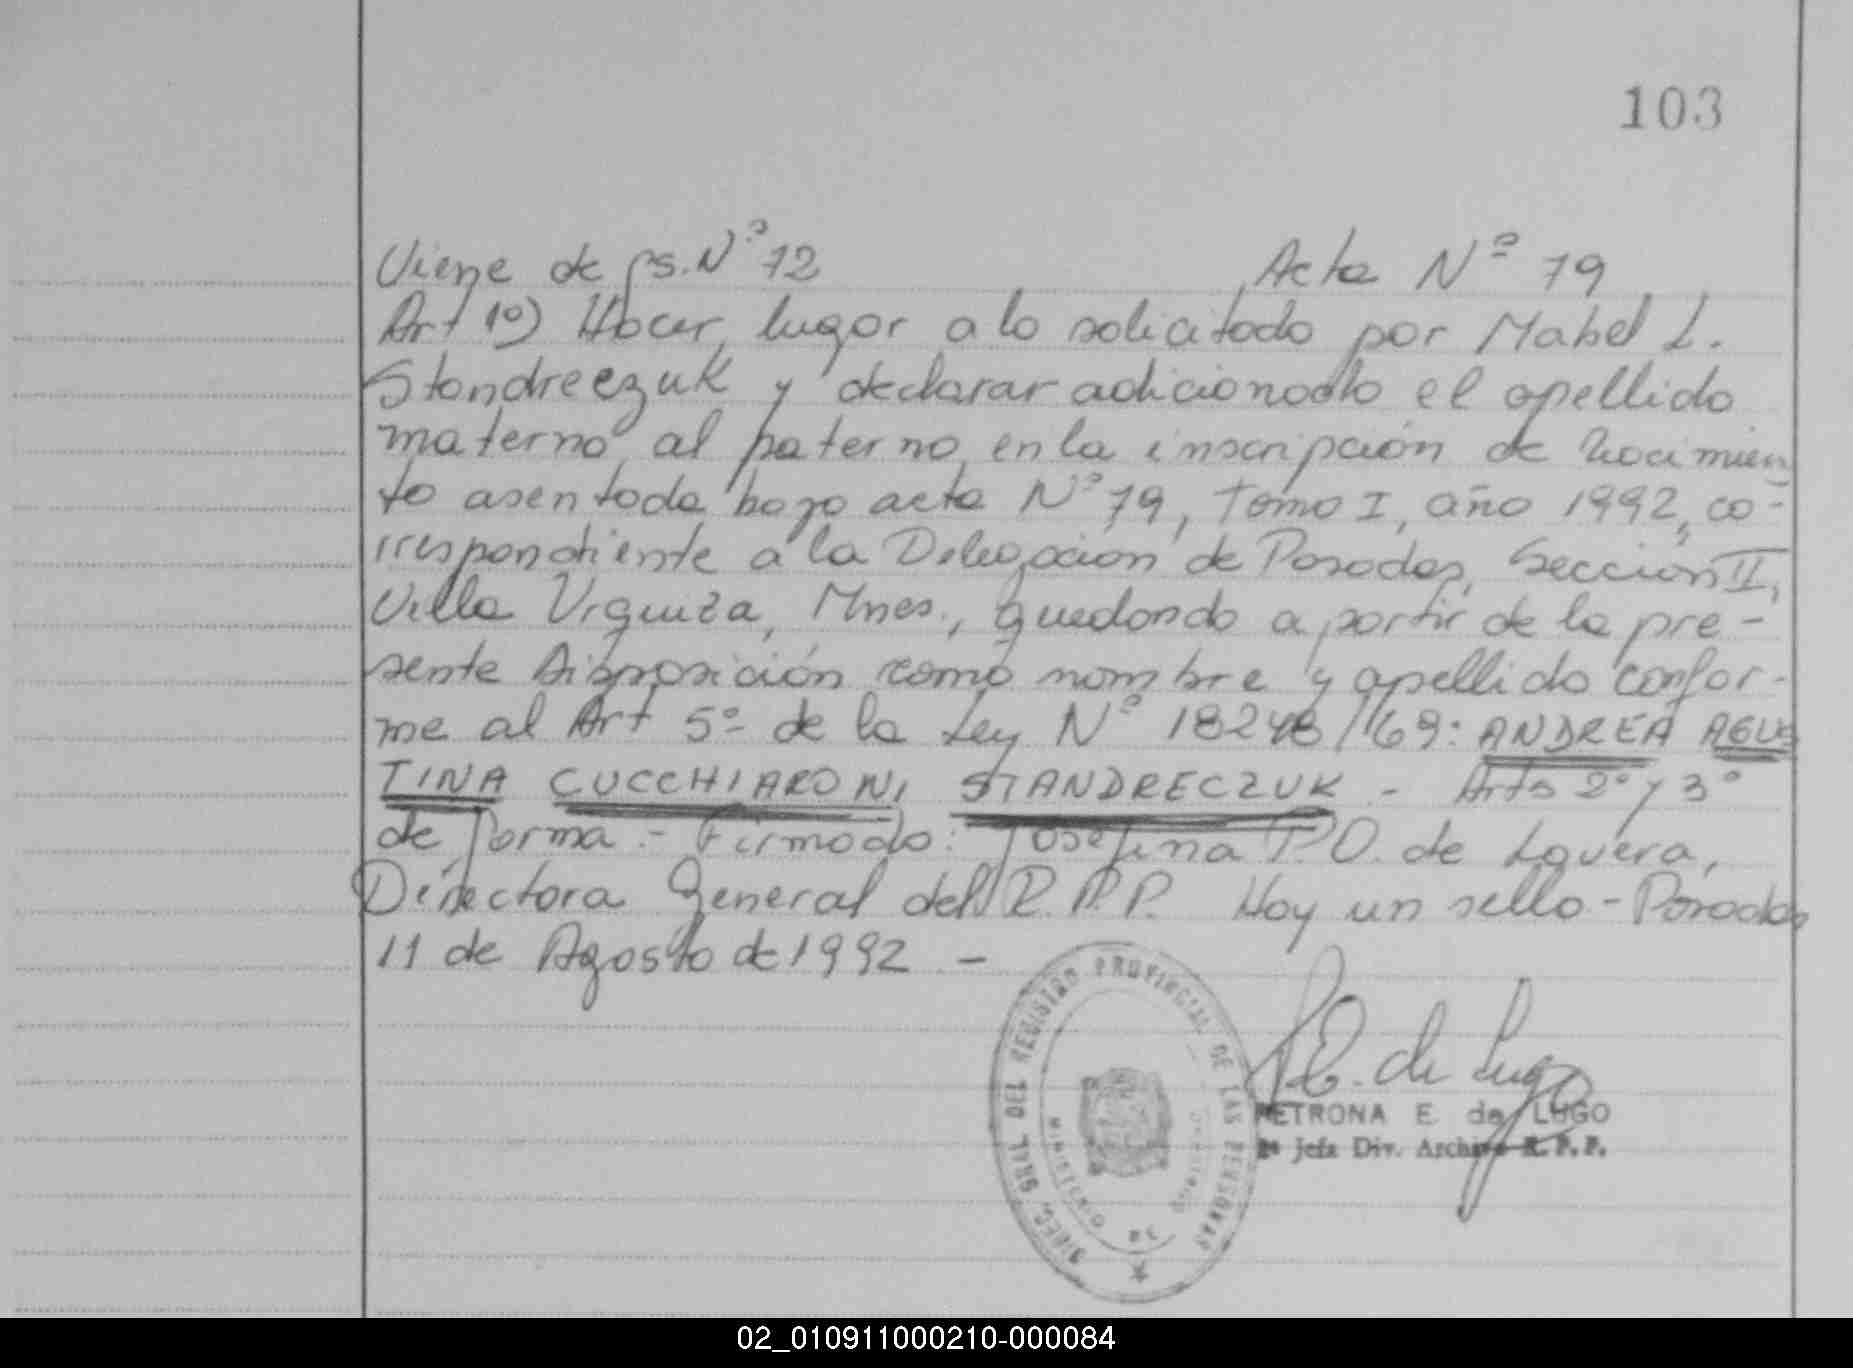 103
Viene de fs. Nº 72 Acta Nº 79
Art 1º) Hacer lugar a lo solicitado por Mabel L.
Standreczuk y declarar adicionado el apellido
materno al paterno, en la inscripción de nacimien
to asentada bajo acta Nº 79, Tomo I, año 1992, co-
rrespondiente a la Delegación de Posadas, Sección II,
Villa Urquiza, Mnes., quedando a partir de la pre-
sente Disposición como nombre y apellido confor-
me al Art 5º de la Ley Nº 18248/69: ANDREA AGUS
TINA CUCCHIARONI STANDRECZUK - Arts 2º y 3º
de forma.- Firmado: Josefina P. O. de Aquera,
Directora General del R.P.P. Hay un sello - Posadas
11 de Agosto de 1992 -
DIREC. GRAL. DEL REGISTRO PROVINCIAL DE LAS PERSONAS
MINISTERIO DE
P E. de Lugo
PETRONA E. de LUGO
Jefa Div. Archivo R.P.P.
02_010911000210-000084